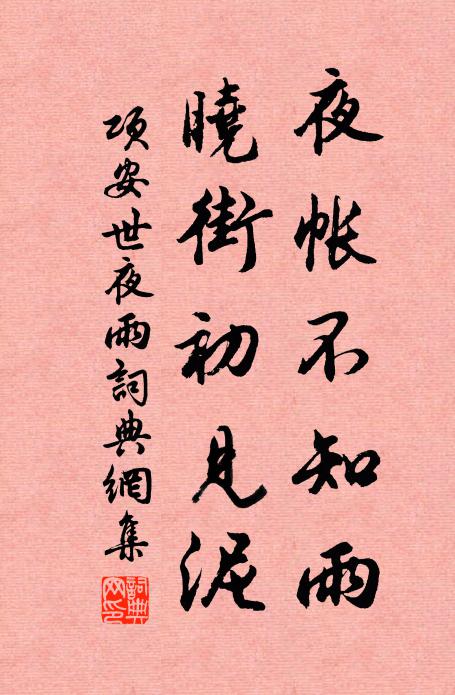 夜帐不知雨
曉街初見泥
項安世夜雨詞典網集
詞典網印